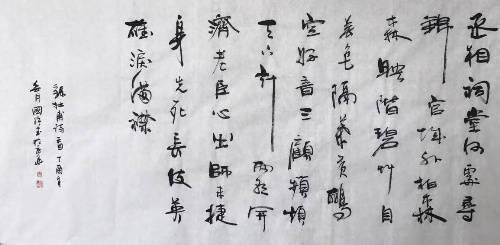 丞相祠堂何處尋
錦官城外柏森
森映階碧艸自
春色隔葉黃鸝
空好音三顧頻煩
天下計兩朝開
濟老臣心出師未捷
身先死長使英
雄淚滿襟
錄杜甫詩一首丁酉年
月國